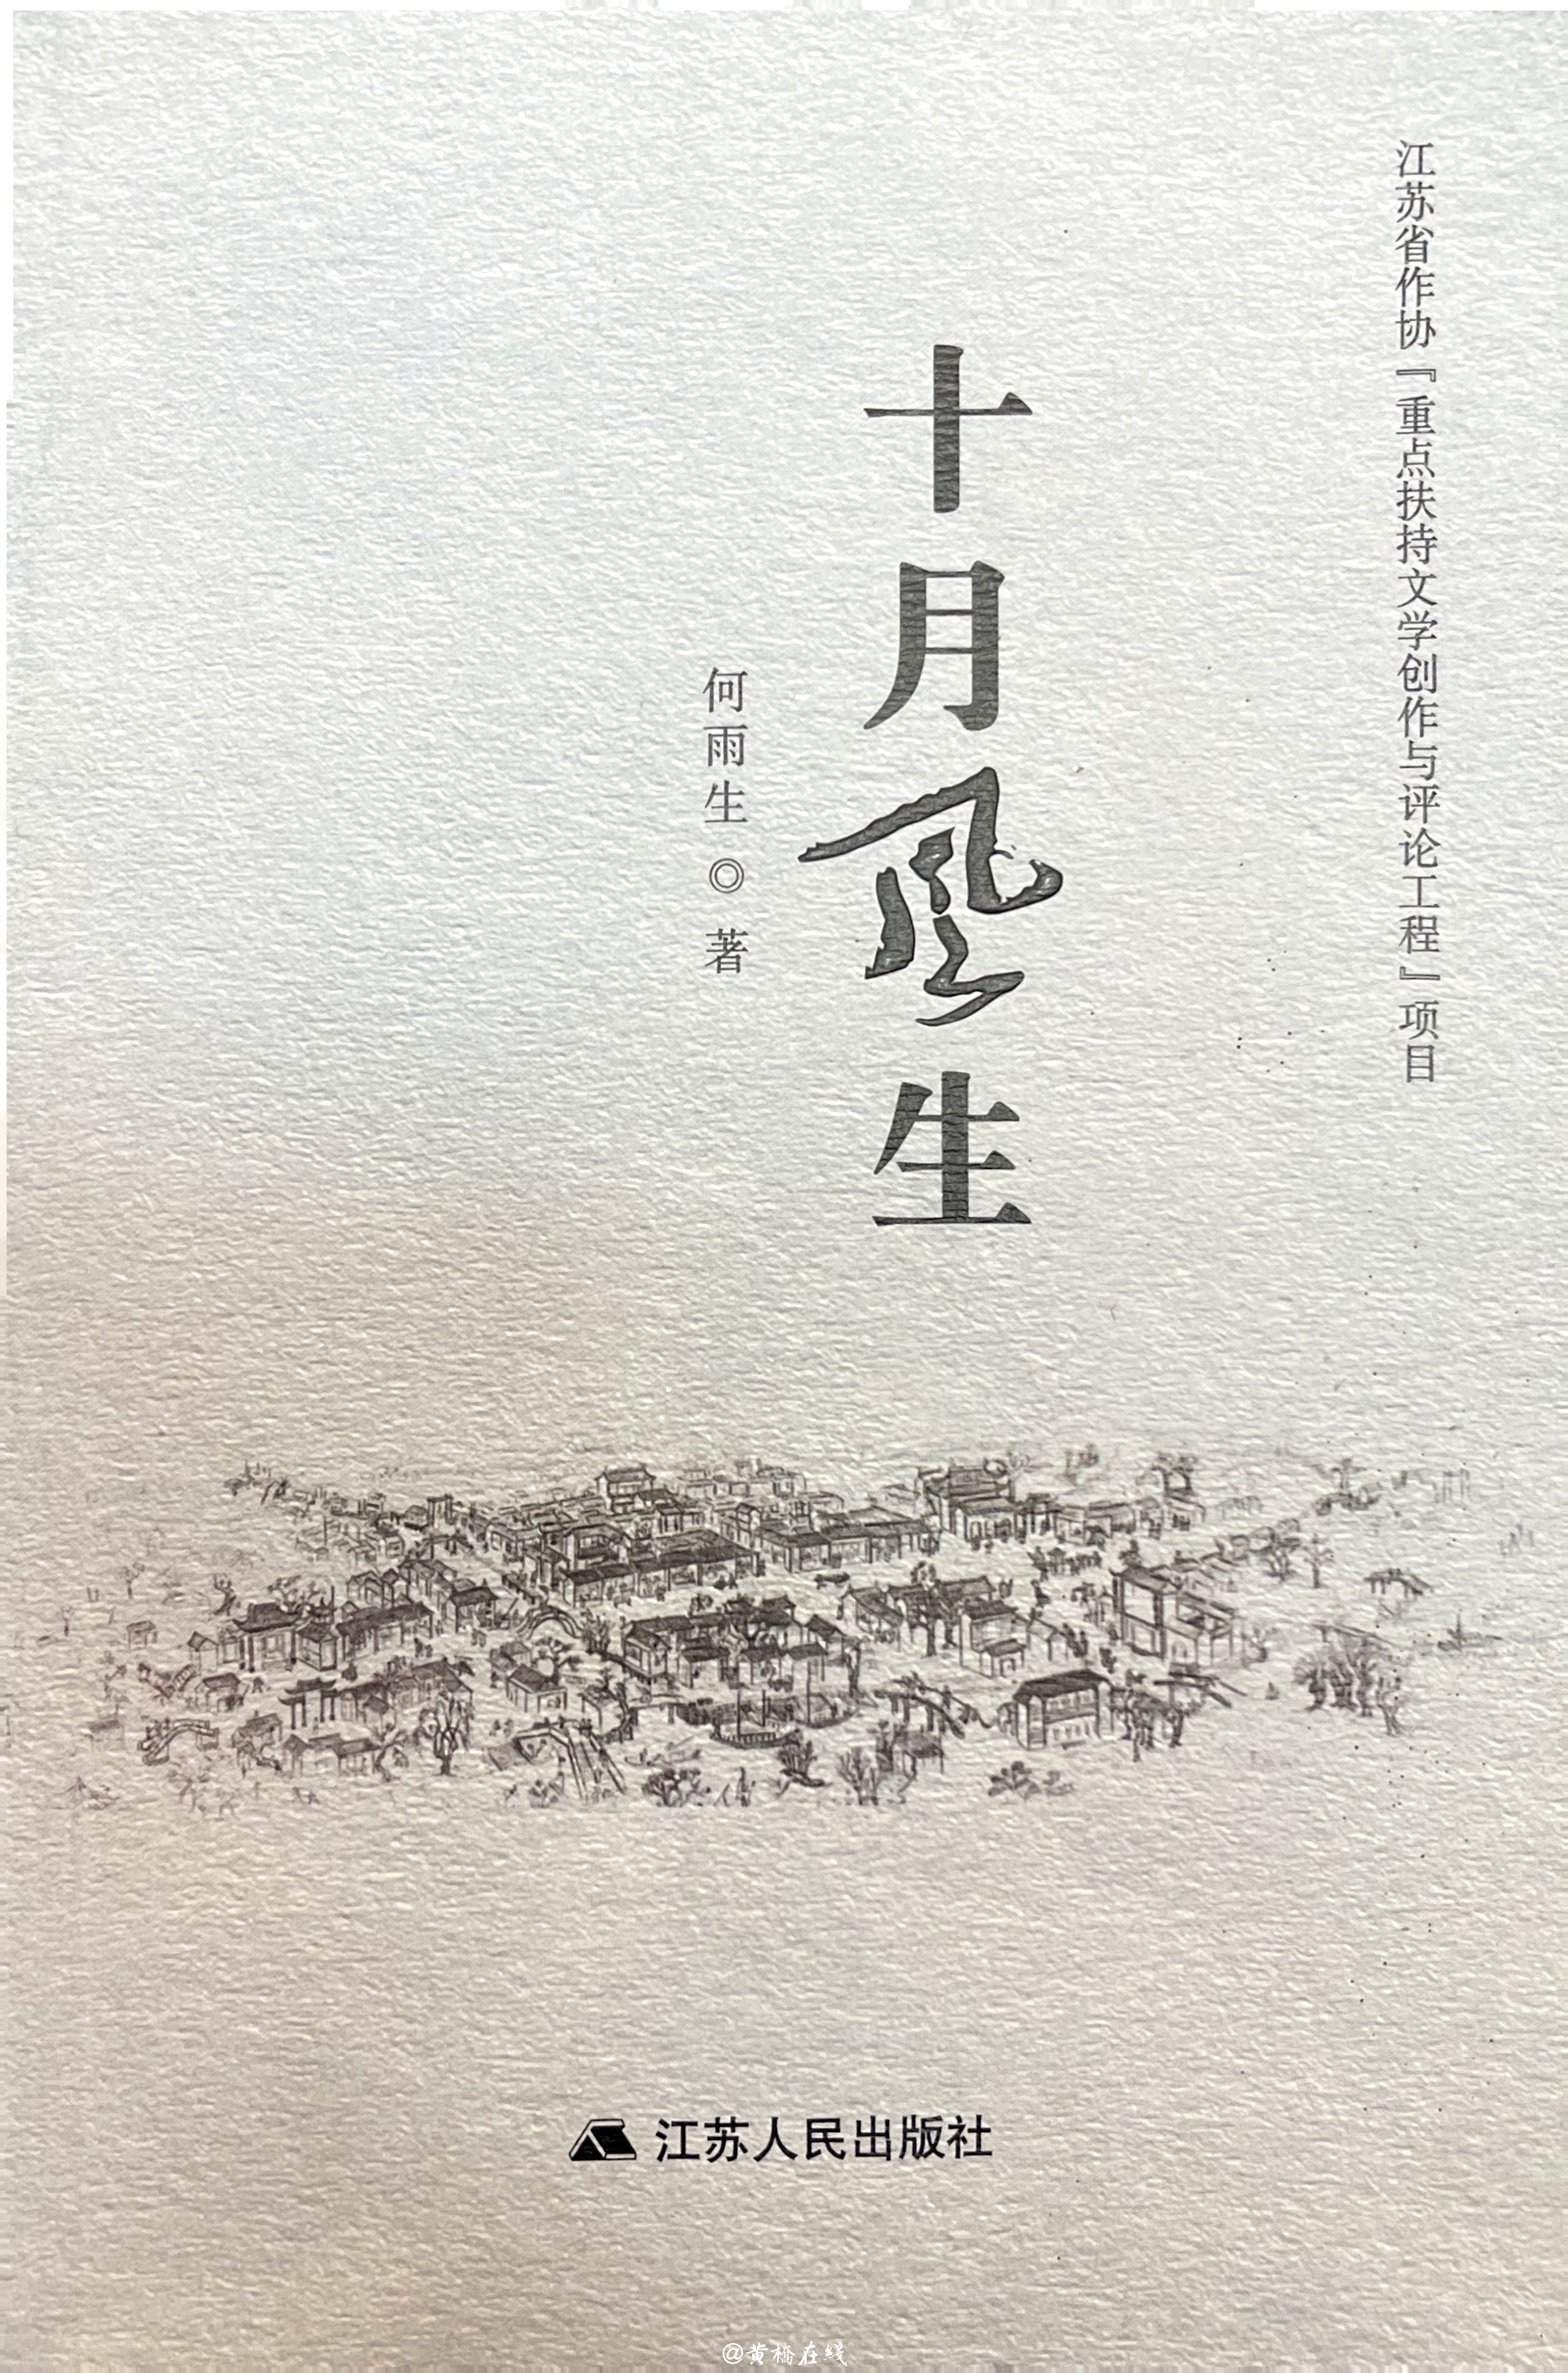 江苏省作协『重点扶持文学创作与评论工程』项目
十月风生
何雨生◎著
江苏人民出版社
@黄桥在线